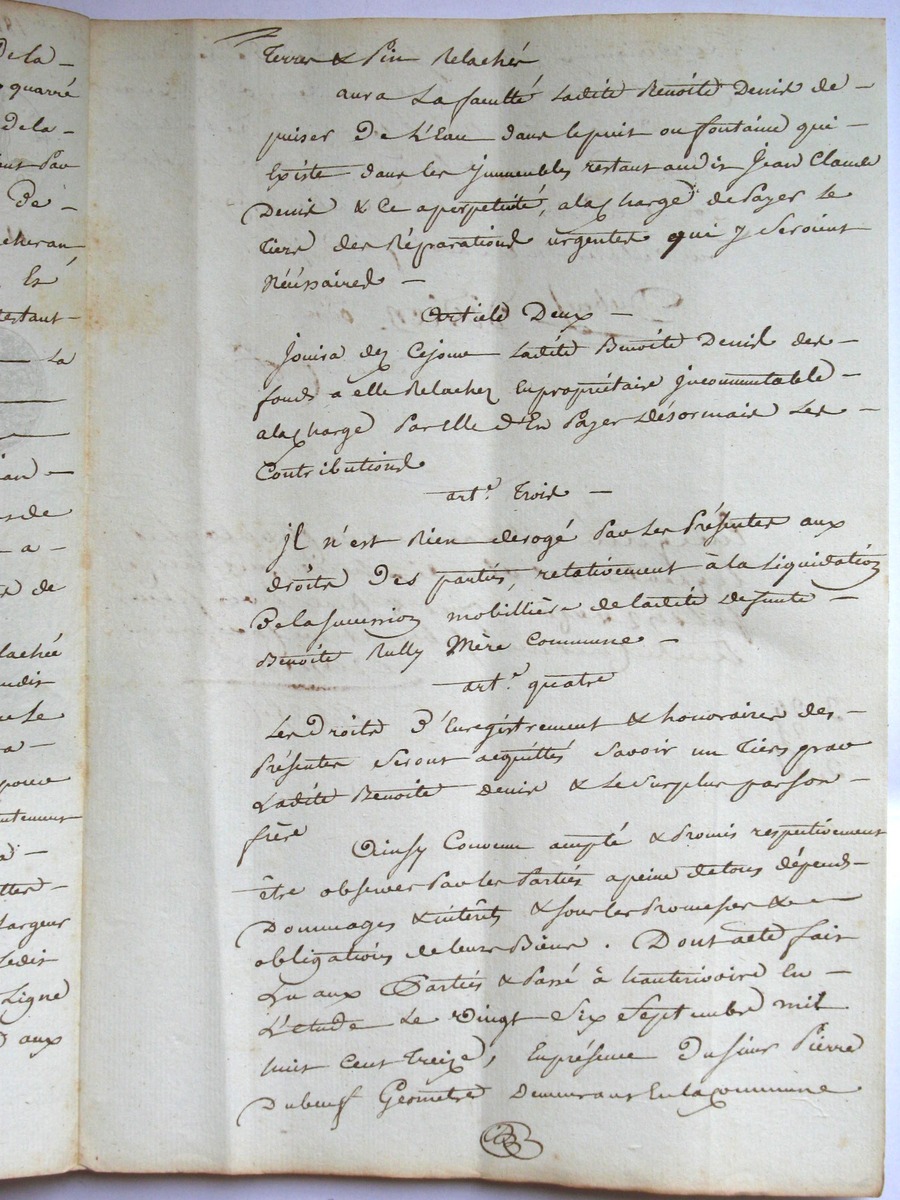 De la -
quarré
De la -
De -
Es
restant -
La
De
a -
de
lachée
La -
pouce
Largeur
Ledit
Ligne
aux
Terres & Pin Relachés
aura La faculté Ladite Benoite Denis de -
puiser De L'Eau dans le puit ou fontaine qui -
Existe dans les Jmmeubles restant audit Jean Claude
Denis & Ce a perpetuité, a la Charge de Payer Le
Tiers des Réparations urgentes qui y Seroient
Nécéssaires -
Article Deux -
Jouira dez Ce jour Ladite Benoite Denis des -
fonds a elle Relachez En propriétaire Jncommutable -
a la Charge Par Elle d'En Payer Désormais Les -
Contributions
art.e Trois -
Jl n'est Rien derogé Par Les Présentes aux
droits Des parties, relativement à la Liquidation
De la succession mobillière de ladite defunte -
Benoite Rully Mère Commune -
art.e quatre
Les Droits D'Enregistrement & honoraires des -
Présentes Seront acquittés Savoir un Tiers par
Ladite Benoite Denis & Le Surplus par Son -
frère
Ainsy Convenu accepté & Promis respectivement
être observer Par Les Parties a peine de tous dépends -
Dommages & intérêts & sous les Promesses & -
obligations de leurs Biens. Dont acte fait
Lu aux Parties & Passé à hauterivoire En -
L'étude Le Vingt Six Septembre mil
huit Cent Treize, En présence Du sieur Pierre
Dubeuf Géomètre Demeurant En la Commune